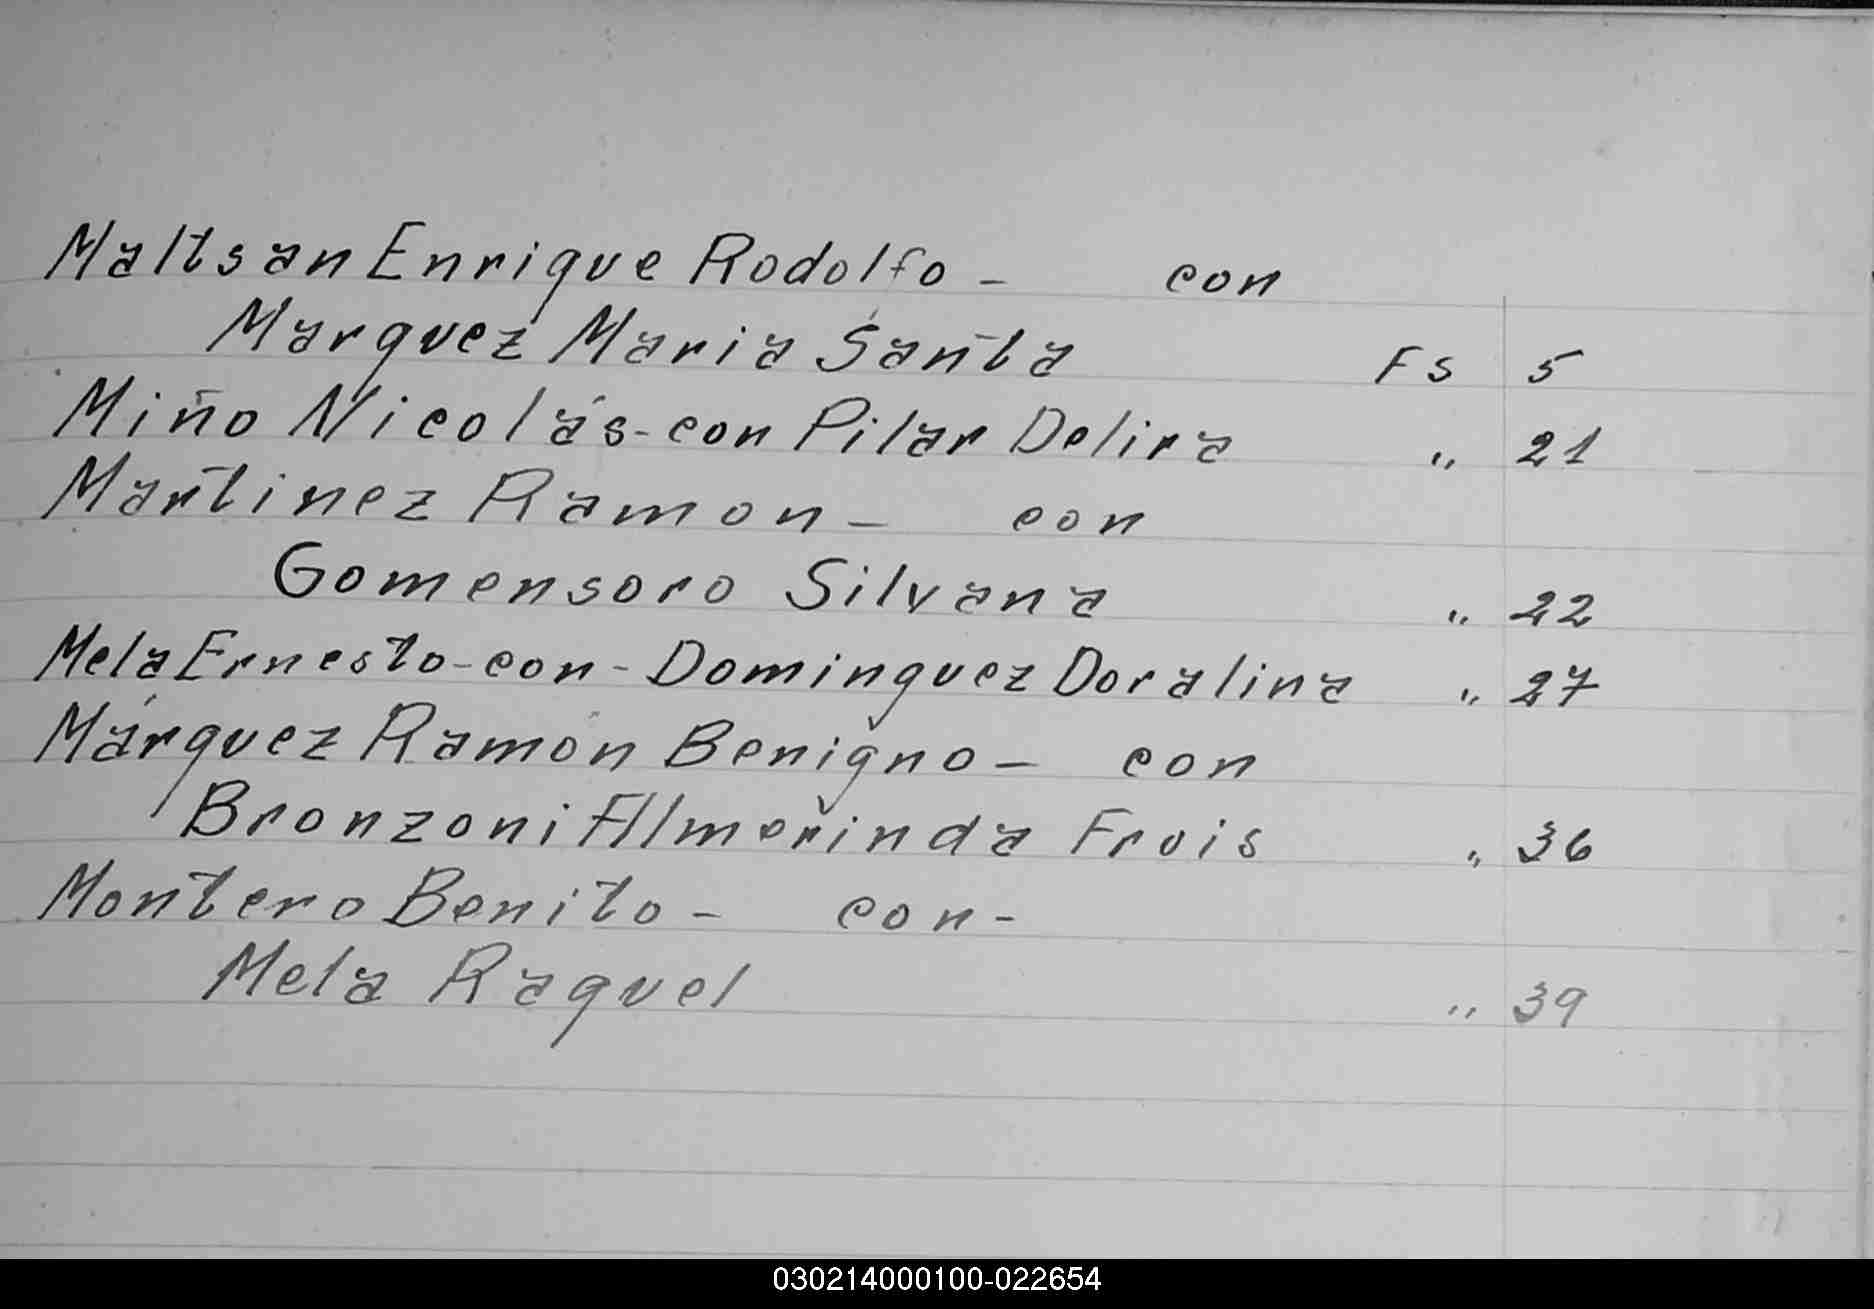 Maltsan Enrique Rodolfo - con
Marquez Maria Santa Fs 5
Miño Nicolás - con Pilar Delira " 21
Martinez Ramon - con
Gomensoro Silvana " 22
Mela Ernesto - con - Dominguez Doralina " 27
Márquez Ramón Benigno - con
Bronzoni Almerinda Frois " 36
Montero Benito - con -
Mela Raquel " 39
030214000100-022654